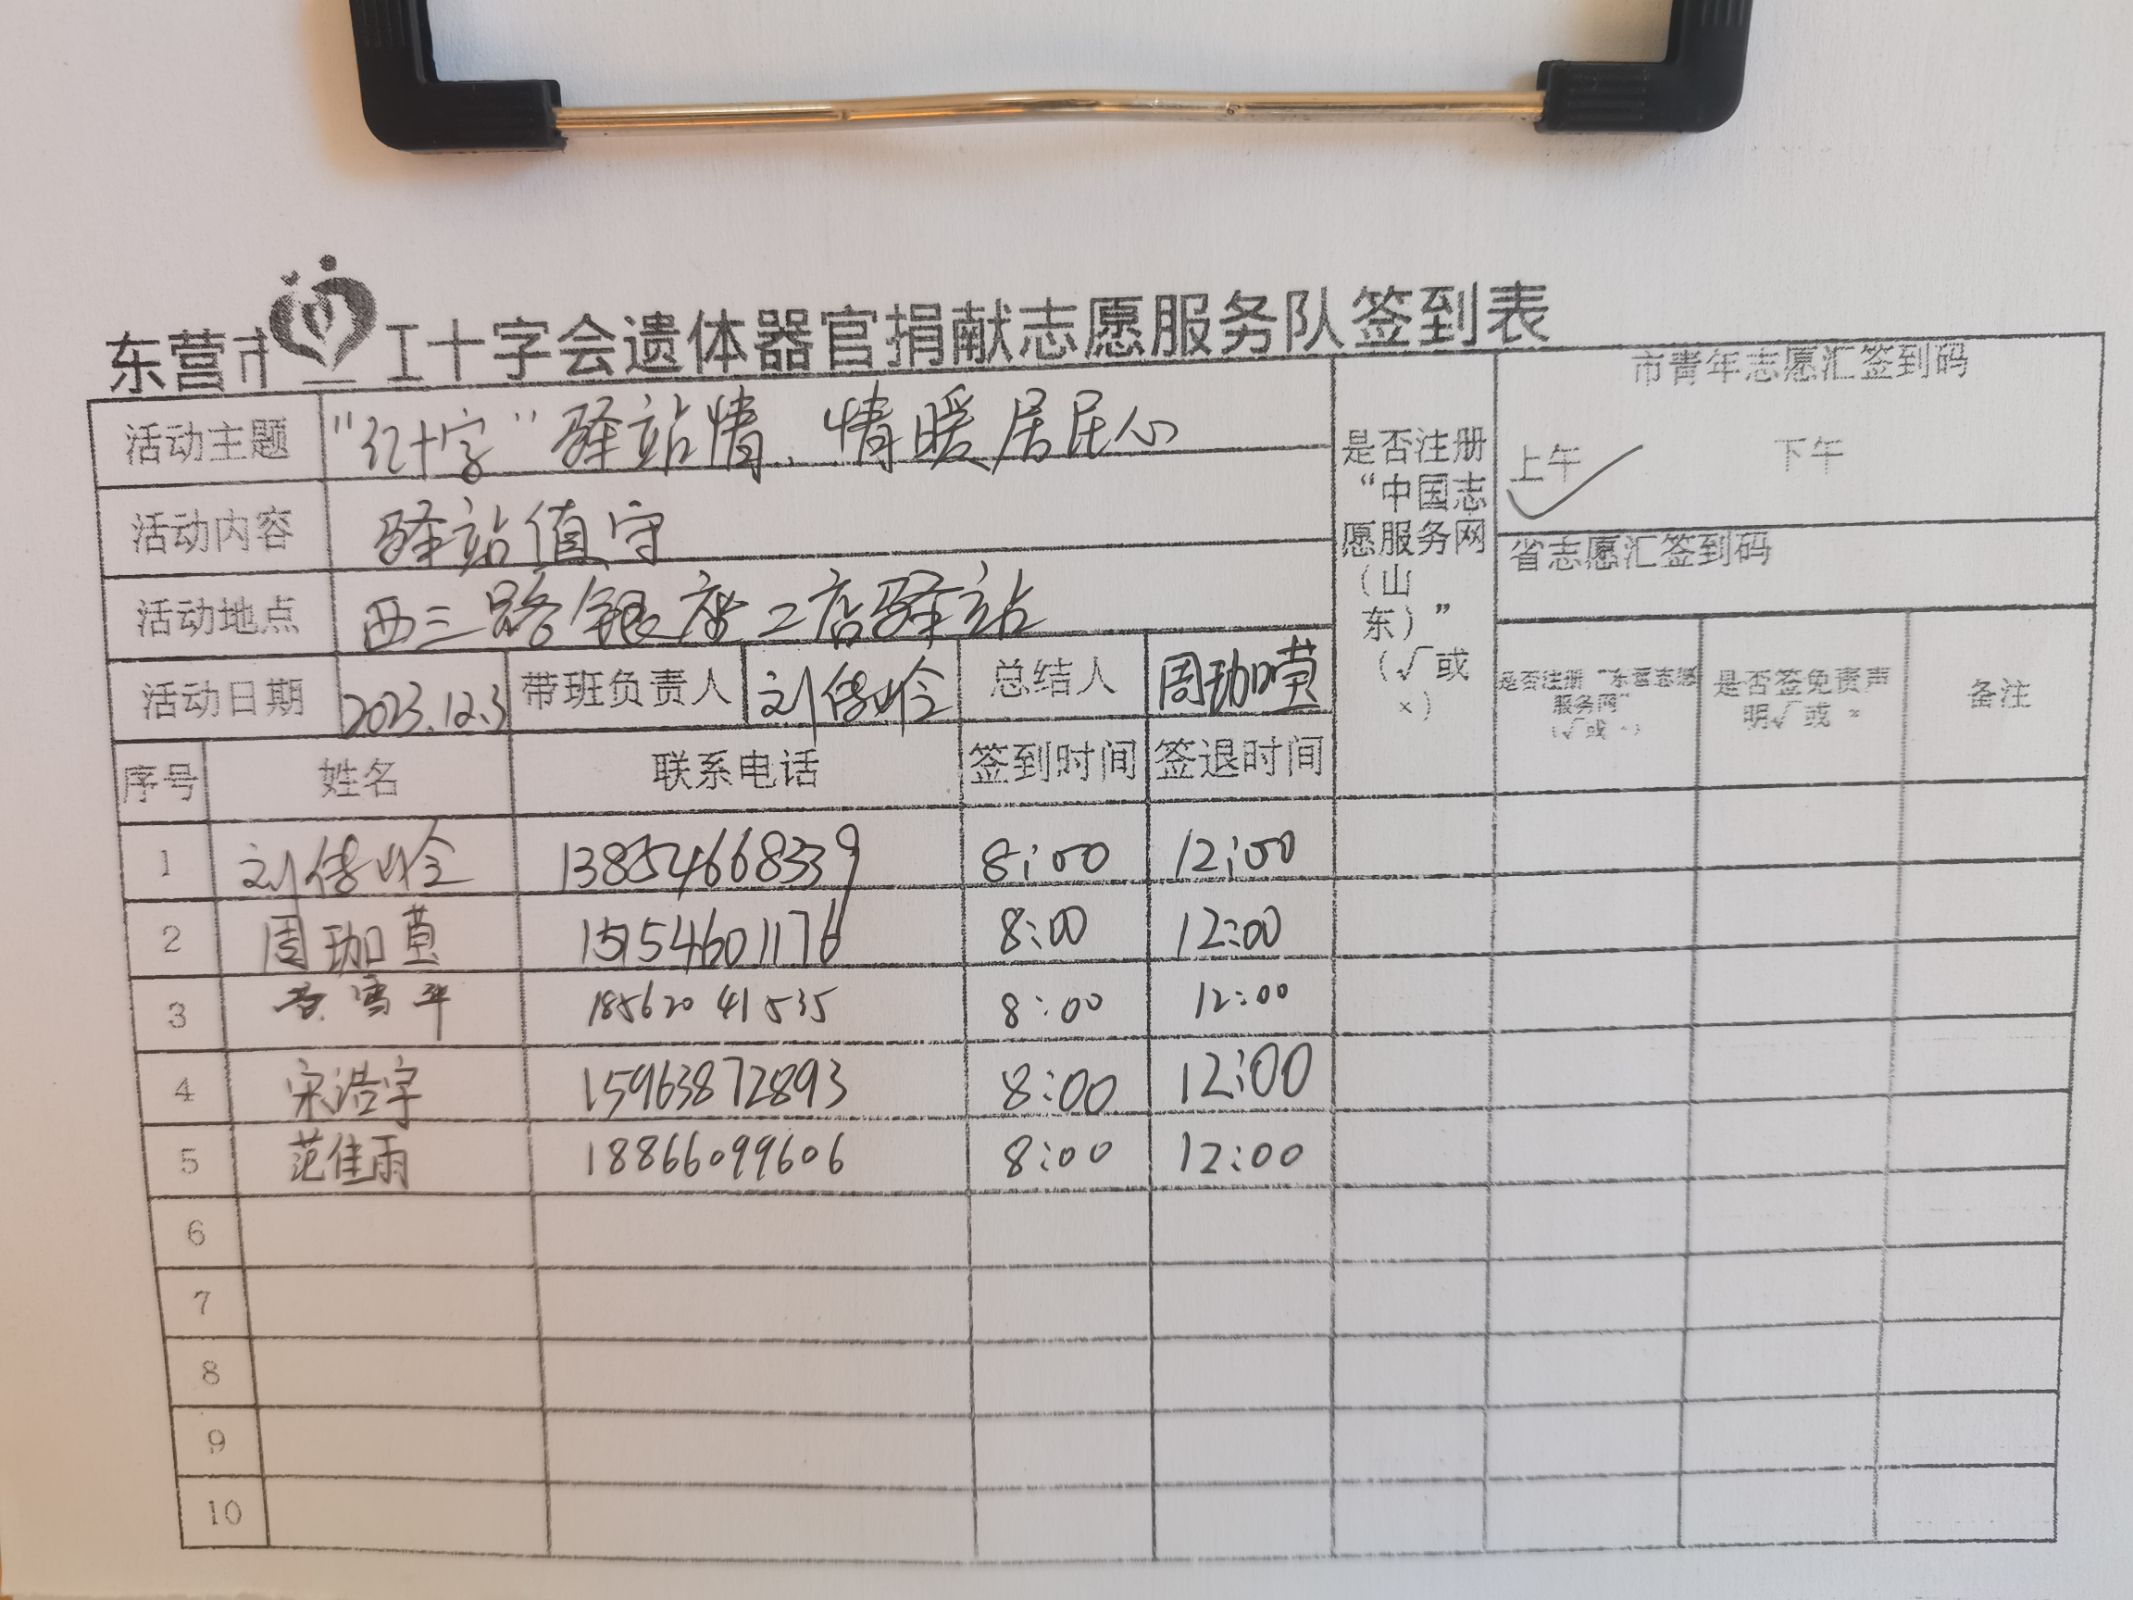 东营市红十字会遗体器官捐献志愿服务队签到表
活动主题 “红十字”驿站情、情暖居民心
活动内容 驿站值守
活动地点 西三路银座二店驿站
活动日期 2023.12.3 带班负责人 刘传岭 总结人
是否注册“中国志愿服务网（山东）”（√或×）
市青年志愿汇签到码
上午 √ 下午
省志愿汇签到码
是否注册“东营志愿服务网”（√或×） 是否签免责声明√或× 备注
序号 姓名 联系电话 签到时间 签退时间
1 刘传岭 13854668339 8:00 12:00
2 周珈 15154601176 8:00 12:00
3 18562041535 8:00 12:00
4 宋浩宇 15963872893 8:00 12:00
5 范佳雨 18866099606 8:00 12:00
6
7
8
9
10